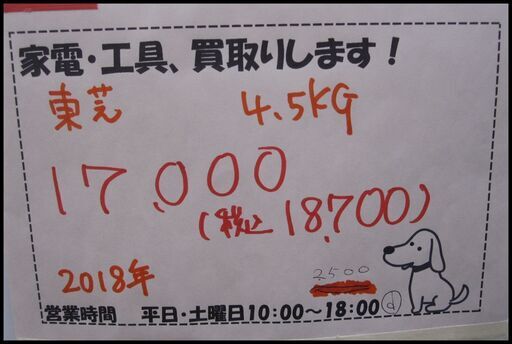 家電・工具、買取りします！
東芝 4.5KG
17,000
(税込 18,700)
2018年
2500
営業時間 平日・土曜日10:00〜18:00 d